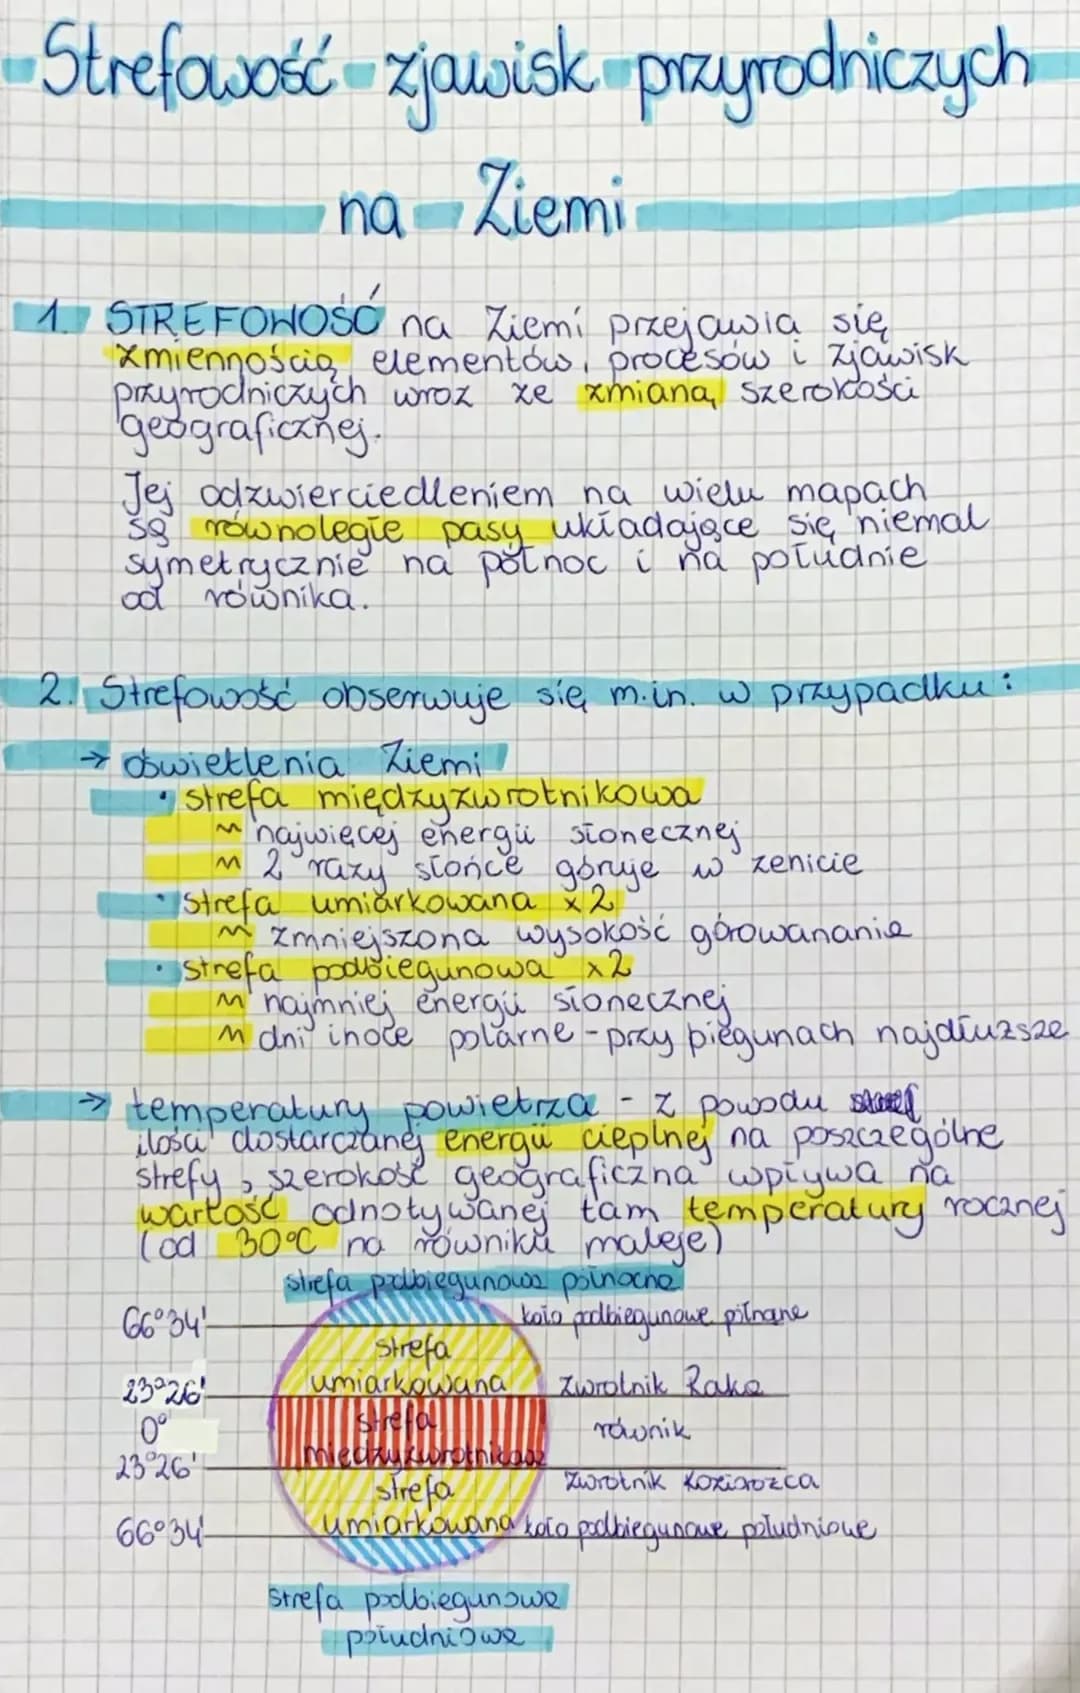 Strefowość zjawisk przyrodniczych
na Ziemi
1. STREFOWOŚĆ na Ziemi przejawia się
zmiennością elementów, procesów i zjawisk
przyrodniczych wraz ze zmianą szerokości
geograficznej.
Jej odzwierciedleniem na wielu mapach
są równoległe pasy układające się niemal
symetrycznie na północ i na południe
od równika.
2. Strefowość obserwuje się m.in. w przypadku:
→ oświetlenia Ziemi
• strefa międzyzwrotnikowa
~ najwięcej energii słonecznej
~ 2 razy słońce góruje w zenicie
• strefa umiarkowana x2
~ zmniejszona wysokość górowanania
• strefa podbiegunowa x2
~ najmniej energii słonecznej
~ dni i noce polarne - przy biegunach najdłuższe
→ temperatury powietrza - z powodu
ilości dostarczanej energii cieplnej na poszczególne
strefy, szerokość geograficzna wpływa na
wartość odnotywanej tam temperatury rocznej
(od 30°C na równiku maleje)
strefa podbiegunowa północna
66°34' koło podbiegunowe półnone
strefa
23°26' umiarkowana zwrotnik Raka
0° strefa równik
23°26' międzyzwrotnikowa
strefa zwrotnik Koziorożca
66°34' umiarkowana koło podbiegunowe południowe
strefa podbiegunowa
południowa